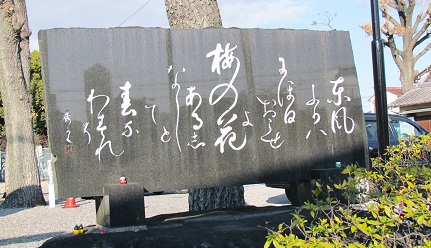 東風
ふかハ
にほひ
おこせ
よ
梅の花
あるし
なし
とて
春な
わすれ
そ